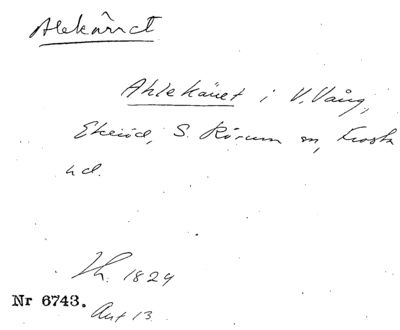 Alekärret
Ahlekäret i V. Vång,
Ekeröd, S. Rörum sn, Frosta
hd.
Th. 1829
Nr 6743.
Ant 13